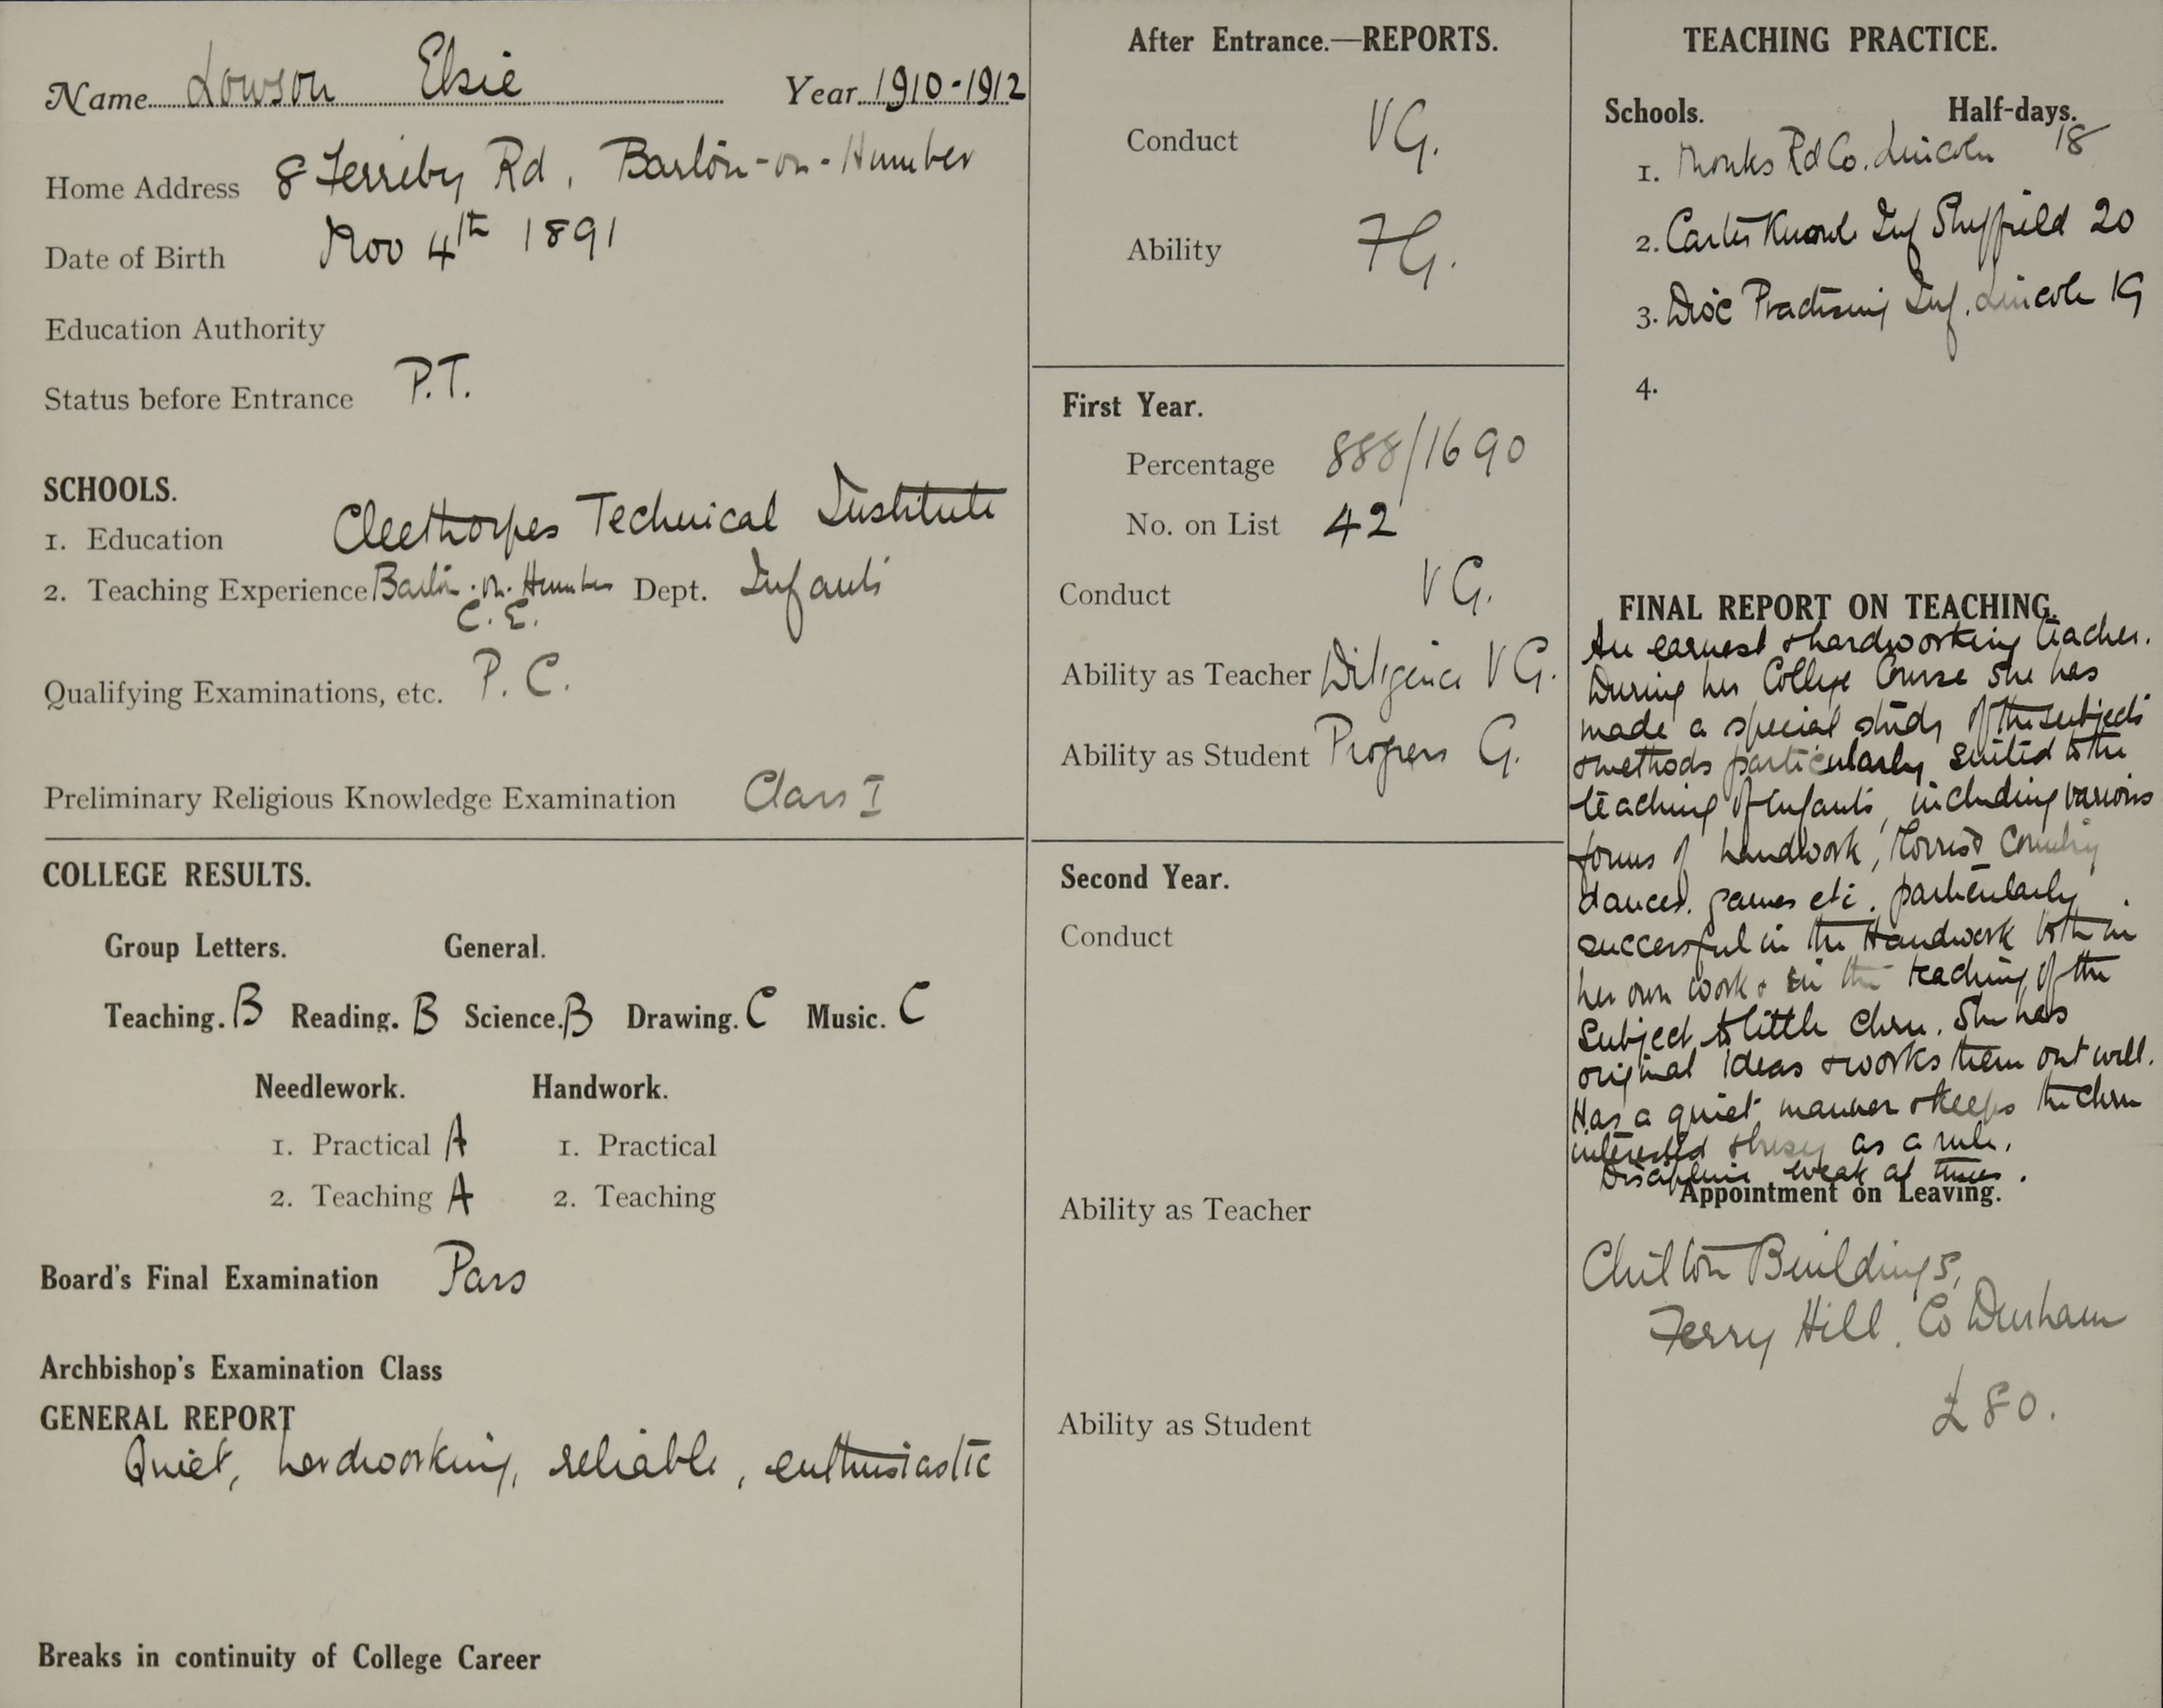 Name Lowson Elsie Year 1910-1912
Home Address 8 Ferriby Rd, Barton-on-Humber
Date of Birth Nov 4th 1891
Education Authority
Status before Entrance P.T.
SCHOOLS.
1. Education Cleethorpes Technical Institute
2. Teaching Experience Barton-on-Humber Dept. Infants
C.E.
Qualifying Examinations, etc. P.C.
Preliminary Religious Knowledge Examination Class I
COLLEGE RESULTS.
Group Letters. General.
Teaching. B Reading. B Science. B Drawing. C Music. C
Needlework. Handwork.
1. Practical A 1. Practical
2. Teaching A 2. Teaching
Board's Final Examination Pass
Archbishop's Examination Class
GENERAL REPORT
Quiet, hardworking, reliable, enthusiastic
Breaks in continuity of College Career
After Entrance.—REPORTS.
Conduct VG.
Ability FG.
First Year.
Percentage 888/1690
No. on List 42
Conduct VG.
Ability as Teacher Diligence VG.
Ability as Student Progress G.
Second Year.
Conduct
Ability as Teacher
Ability as Student
TEACHING PRACTICE.
Schools. Half-days.
1. Monks Rd Co. Lincoln 18
2. Carter Knowle Inf Sheffield 20
3. Dioc Practising Inf. Lincoln 19
4.
FINAL REPORT ON TEACHING.
An earnest & hardworking teacher.
During her College Course she has
made a special study of the subjects
& methods particularly suited to the
teaching of Infants, including various
forms of handwork, Morris & Country
dances, games etc. particularly
successful in the Handwork both in
her own work & in the teaching of the
subject to little chrn. She has
original ideas & works them out well.
Has a quiet manner & keeps the chrn
interested & busy as a rule.
Discipline weak at times.
Appointment on Leaving.
Chilton Buildings,
Ferry Hill. Co Durham
£80.